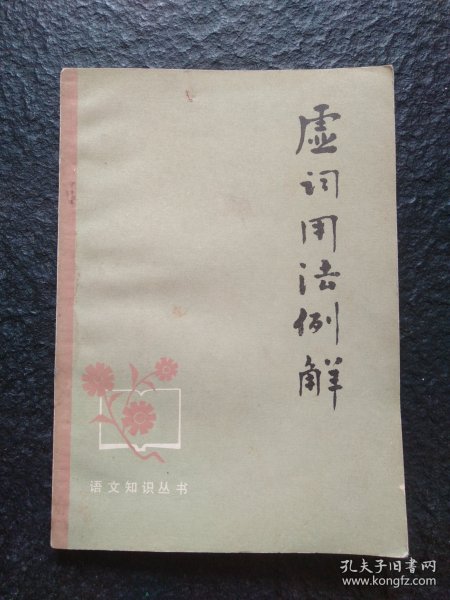 虚词用法例解
语文知识丛书
孔夫子旧书网
www.kongfz.com